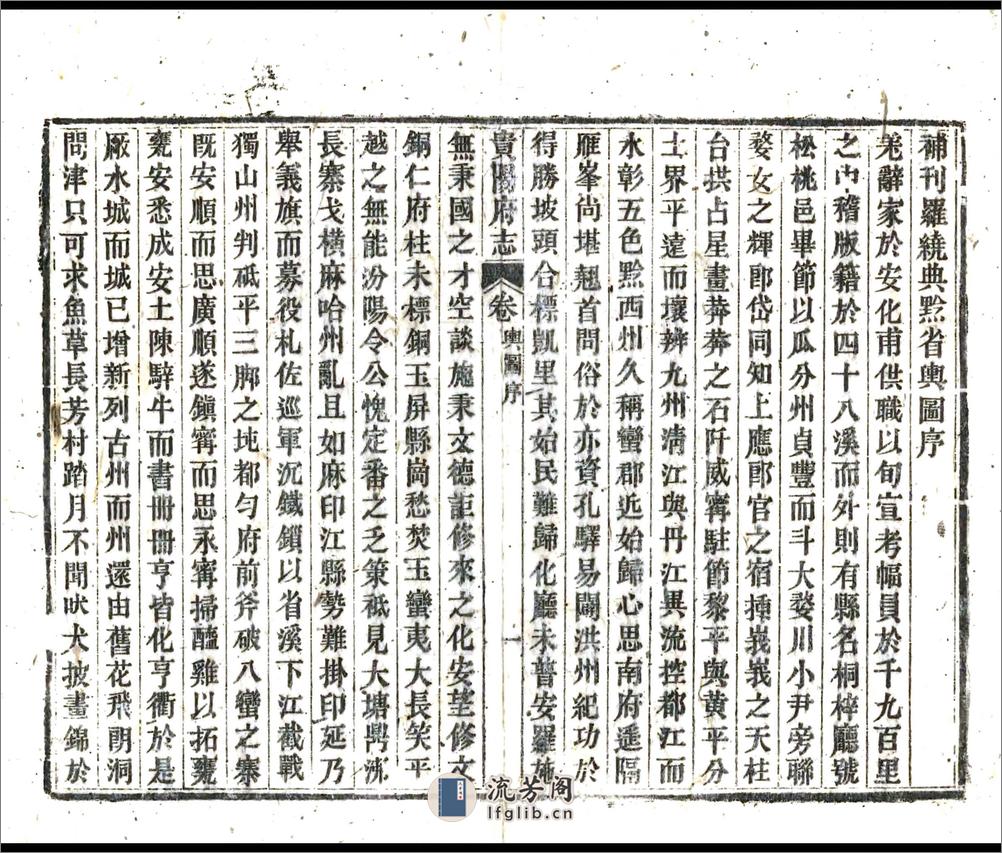 補刊羅繞典黔省輿圖序
羌辭家於安化甫供職以旬宣考幅員於千九百里
之內稽版籍於四十八溪而外則有縣名桐梓廳號
松桃邑畢節以瓜分州貞豐而斗大婺川小尹旁聯
婺女之輝郎岱同知上應郎官之宿插峩峩之天柱
台拱占星畫莽莽之石阡威寧駐節黎平與黄平分
土界平遠而壤辨九州清江與丹江異流控都江而
水彰五色黔西州久稱蠻郡近始歸心思南府遥隔
雁峯尚堪翹首問俗於亦資孔驛易闢洪州紀功於
得勝坡頭合標凱里其始民難歸化廳未普安羅施
貴陽府志 卷 輿圖序 一
無秉國之才空談施秉文德詎修來之化安望修文
銅仁府柱未標銅玉屏縣崗愁焚玉蠻夷大長笑平
越之無能汾陽令公愧定番之乏策祗見大塘鼎沸
長寨戈橫麻哈州亂且如麻印江縣勢難掛印延乃
舉義旗而募役札佐巡軍沉鐵鎖以省溪下江截戰
獨山州判砥平三脚之坉都勻府前斧破八蠻之寨
既安順而思廣順遂鎭甯而思永甯掃醯雞以拓甕
甕安悉成安土陳騂牛而書冊冊亨皆化亨衢於是
廠水城而城已增新列古州而州還由舊花飛朗洞
問津只可求魚草長芳村踏月不聞吠犬披畫錦於
流芳阁
lfglib.cn